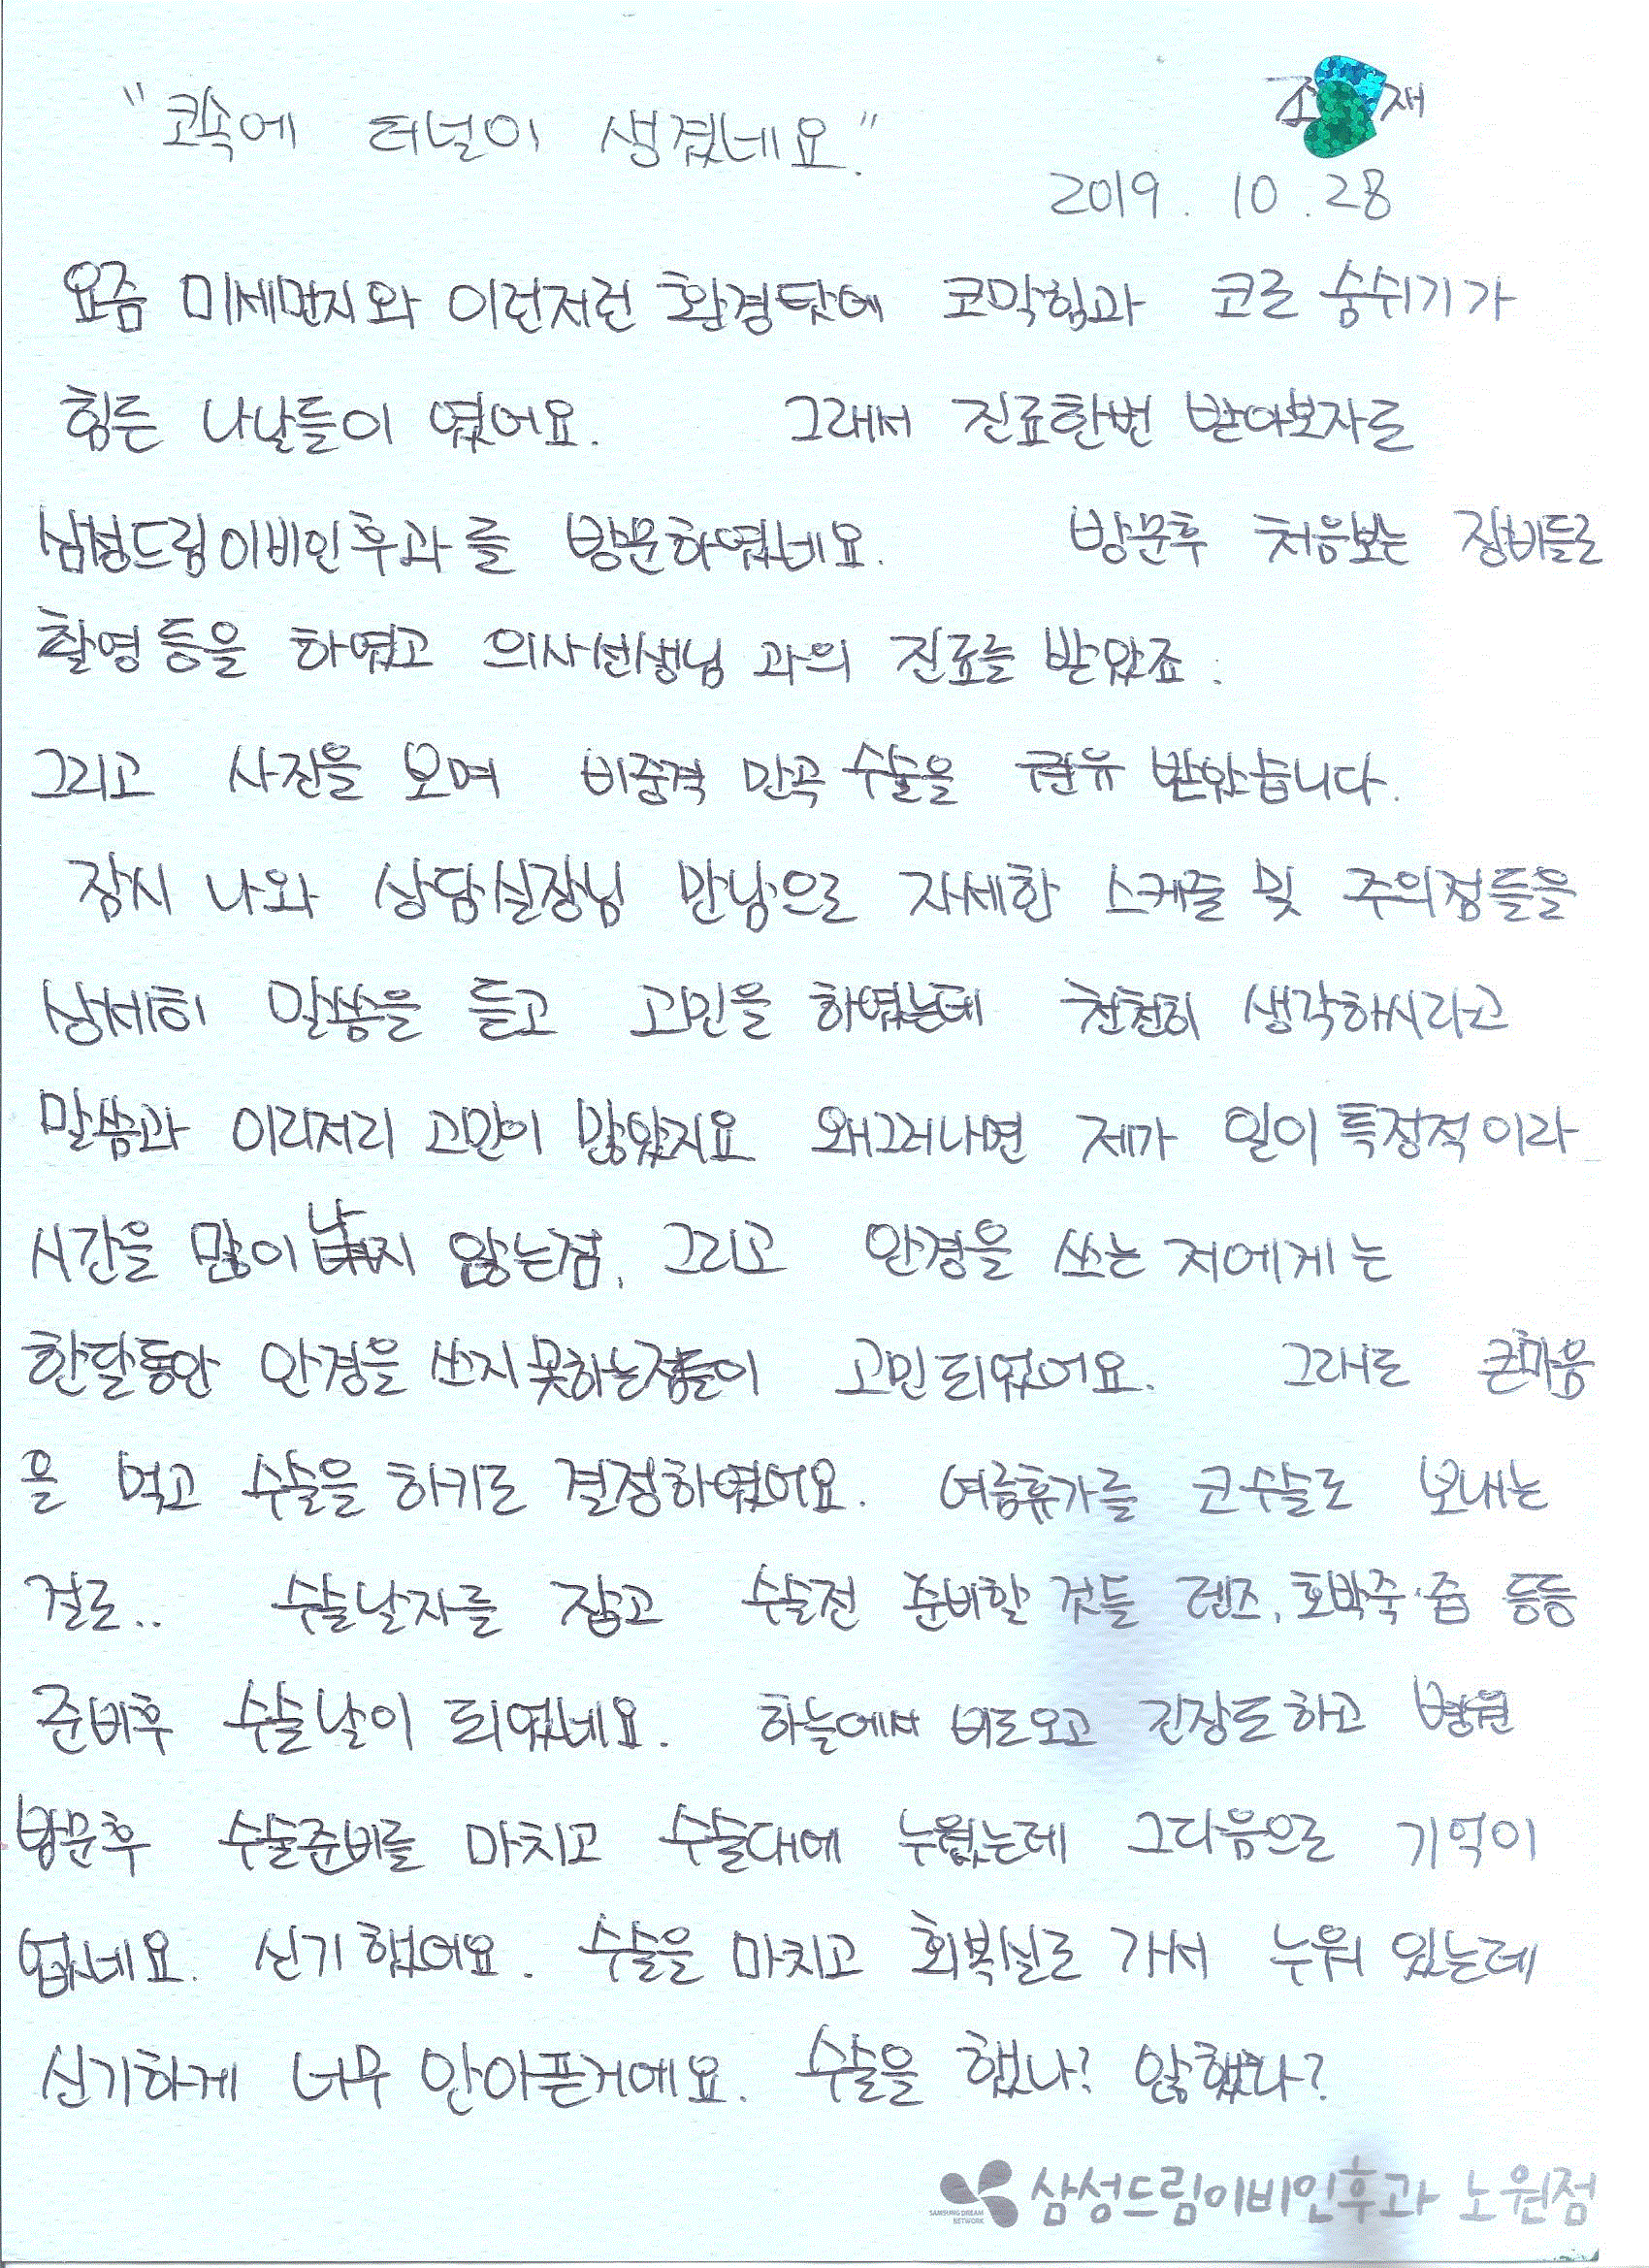 "코속에 터널이 생겼네요."
조 재
2019. 10. 28
요즘 미세먼지와 이런저런 환경탓에 코막힘과 코로 숨쉬기가
힘든 나날들이 였어요. 그래서 진료한번 받아보자로
삼성드림이비인후과를 방문하였네요. 방문후 처음보는 장비들로
촬영등을 하였고 의사선생님과의 진료를 받았죠.
그리고 사진을 보며 비중격 만곡 수술을 권유 받았습니다.
잠시 나와 상담실장님 만남으로 자세한 스케줄 및 주의점들을
상세히 말씀을 듣고 고민을 하였는데 천천히 생각하시라고
말씀과 이리저리 고민이 많았지요 왜그러나면 제가 일이 특정적이라
시간을 많이 낼지 않는점, 그리고 안경을 쓰는 저에게는
한달동안 안경을 쓰지못하는점들이 고민되었어요. 그래도 큰마음
을 먹고 수술을 하기로 결정하였어요. 여름휴가를 코수술로 보내는
걸로.. 수술날자를 잡고 수술전 준비할 것들 렌즈, 호박죽·즙 등등
준비후 수술날이 되었네요. 하늘에서 비도오고 긴장도하고 병원
방문후 수술준비를 마치고 수술대에 누웠는데 그다음으로 기억이
없네요. 신기했어요. 수술을 마치고 회복실로 가서 누워 있는데
신기하게 너무 안아픈거에요. 수술을 했나? 않했나?
SAMSUNG DREAM NETWORK
삼성드림이비인후과 노원점